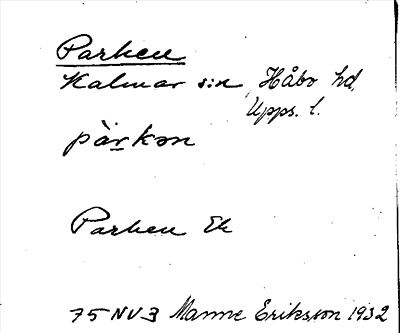 Parken
Kalmar sn Håbo hd,
Upps. l.
pàrkən
Parken Ek
75 NV 3 Manne Eriksson 1932